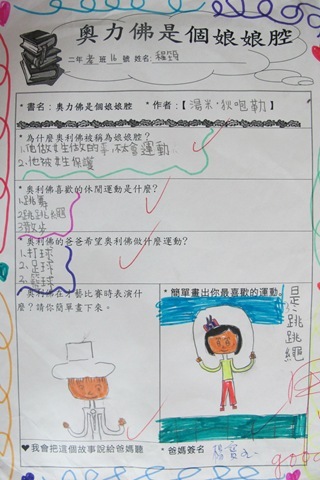 奧力佛是個娘娘腔
二年孝班16號 姓名:
*書名：奧力佛是個娘娘腔 *作者：【湯米·狄咆勒】
*為什麼奧利佛被稱為娘娘腔？
1.他做女生做的事,不會運動
2.他被女生保護
*奧利佛喜歡的休閒運動是什麼？
1.跳舞
2.跳跳繩
3.散步
*奧利佛的爸爸希望奧利佛做什麼運動？
1.打球
2.足球
3.籃球
*奧利佛在才藝比賽時表演什
麼？請你簡單畫下來。
*簡單畫出你最喜歡的運動
是跳跳繩
♥我會把這個故事說給爸媽聽
*爸媽簽名
good